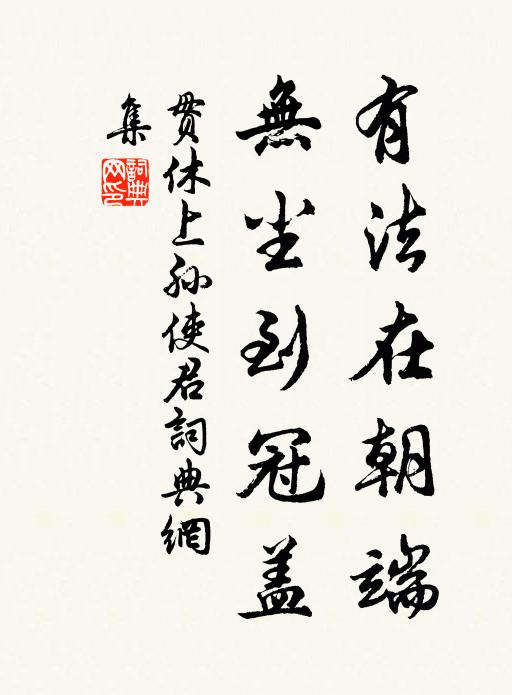 有法在朝端
無尘到冠盖
贯休上孙使君詞典網
集
詞典網印